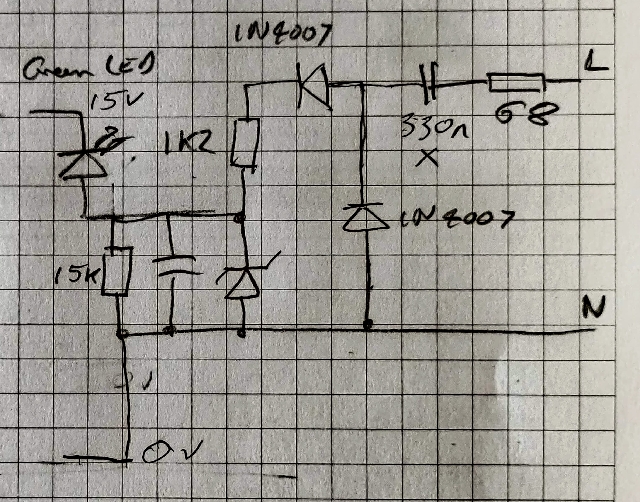 1N4007
Green LED
L
15V
1K2
330n
68
X
1N4007
15K
N
0V